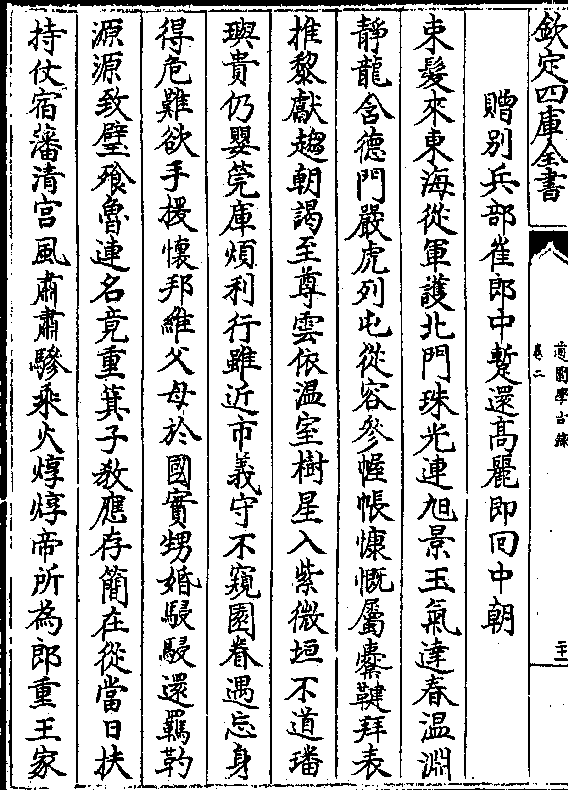 欽定四庫全書
道園學古錄
卷二
二十一
贈别兵部崔郎中蹔還髙麗即囘中朝
束髮來東海從軍護北門珠光連旭景玉氣達春温淵
靜龍含徳門嚴虎列屯從容參幄帳慷慨屬櫜鞬拜表
推黎獻趨朝謁至尊雲依温室樹星入紫微垣不道璠
璵貴仍嬰筦庫煩利行雖近市義守不窺園眷遇忘身
得危難欲手援懐邦維父母於國實甥婚駸駸還羈靮
源源致璧飱魯連名竟重箕子教應存簡在從當日扶
持仗宿藩清宫風肅肅驂乗火焞焞帝所為郎重王家